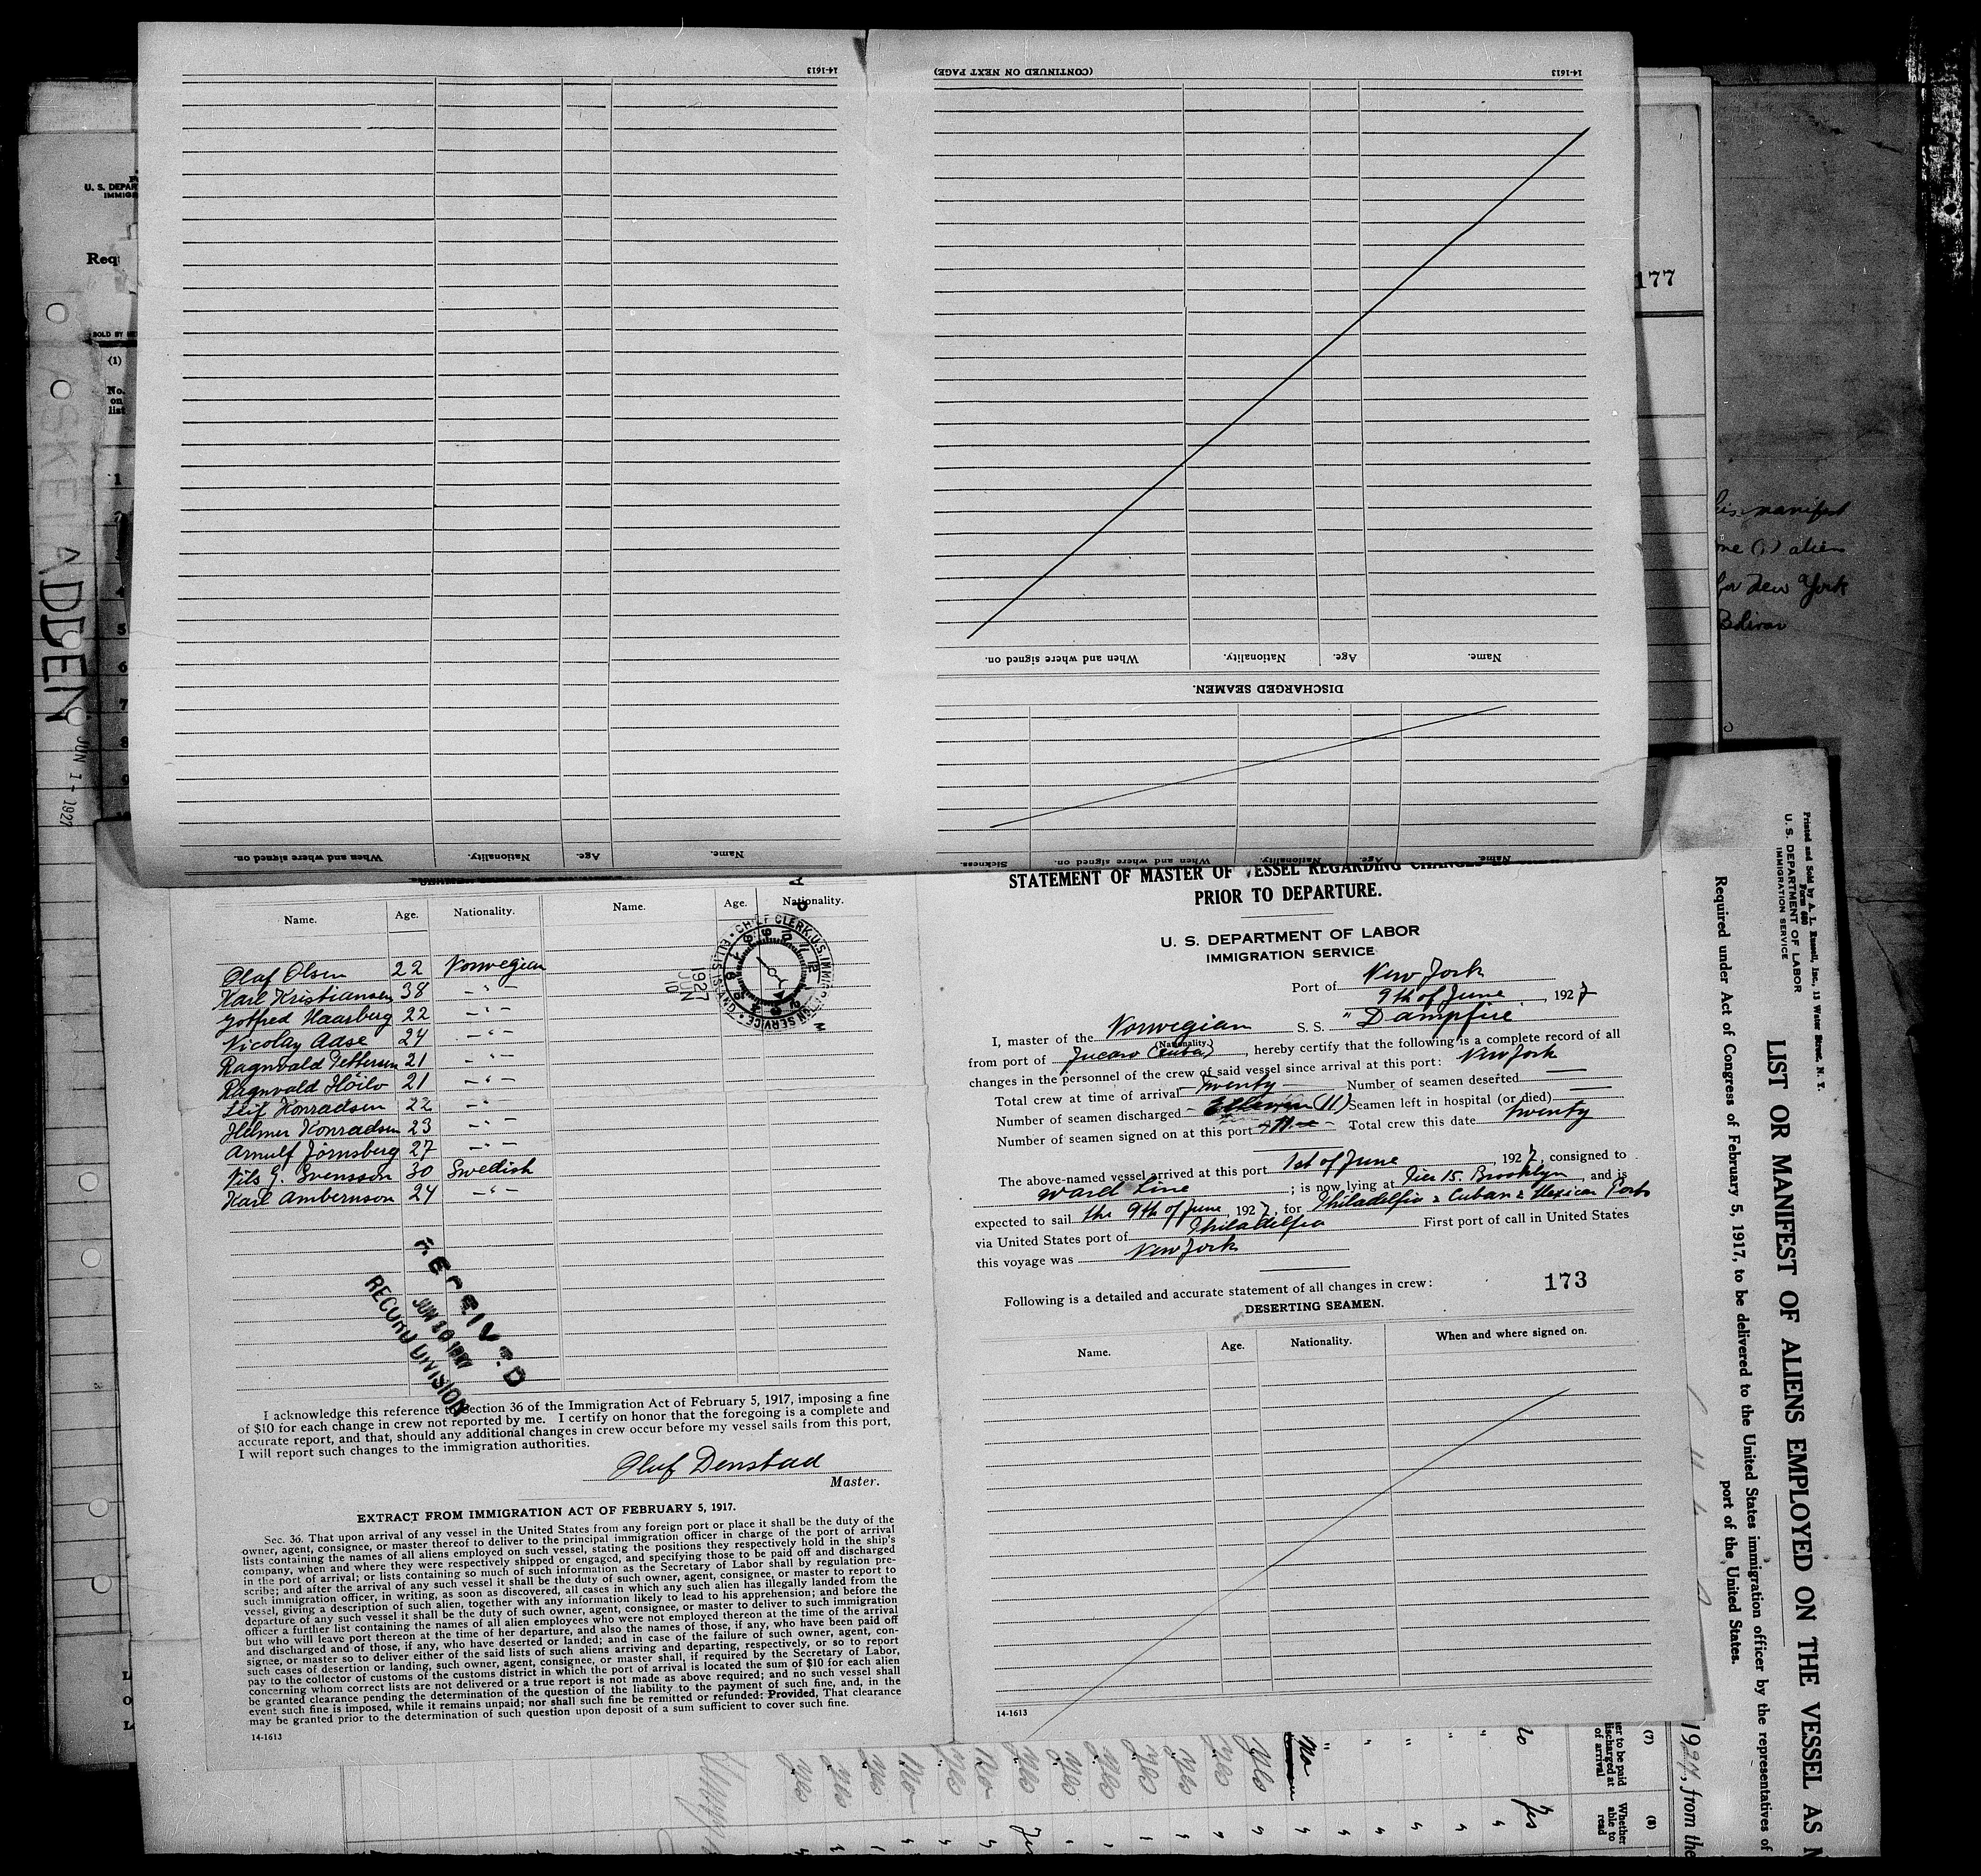 14-1613
(CONTINUED ON NEXT PAGE)
14-1613
When and where signed on.
Nationality.
Age.
Name.
DISCHARGED SEAMEN.
Name.
Age.
Nationality.
When and where signed on.
Sickness.
When and where signed on.
Nationality.
Age.
Name.
U. S. DEPAR
IMMIG
Req
SOLD BY
(1)
No.
on
list
1
2
4
5
6
7
8
9
ADDEN
JUN 1 - 1927
177
his manifest
one (1) alien
for New York
Bolivar
Name. Age. Nationality. Name. Age. Nationality.
Olaf Olsen 22 Norwegian
Karl Kristiansen 38 - " -
Gotfred Haarberg 22 - " -
Nicolay Aase 24 - " -
Ragnvald Pettersen 21 - " -
Ragnvald Höilo 21 - " -
Leif Konradsen 22 - " -
Helmer Konradsen 23 - " -
Arnulf Jörnsberg 27 - " -
Nils G. Svensson 30 Swedish
Karl Ambernson 24 - " -
CHIEF CLERK U.S. IMMIGRATION SERVICE ELLIS ISLAND
1927
JUN
10
RECEIVED
JUN 10 1927
RECORD DIVISION
I acknowledge this reference to Section 36 of the Immigration Act of February 5, 1917, imposing a fine
of $10 for each change in crew not reported by me. I certify on honor that the foregoing is a complete and
accurate report, and that, should any additional changes in crew occur before my vessel sails from this port,
I will report such changes to the immigration authorities.
Oluf Denstad
Master.
EXTRACT FROM IMMIGRATION ACT OF FEBRUARY 5, 1917.
Sec. 36. That upon arrival of any vessel in the United States from any foreign port or place it shall be the duty of the
owner, agent, consignee, or master thereof to deliver to the principal immigration officer in charge of the port of arrival
lists containing the names of all aliens employed on such vessel, stating the positions they respectively hold in the ship's
company, when and where they were respectively shipped or engaged, and specifying those to be paid off and discharged
in the port of arrival; or lists containing so much of such information as the Secretary of Labor shall by regulation pre-
scribe; and after the arrival of any such vessel it shall be the duty of such owner, agent, consignee, or master to report to
such immigration officer, in writing, as soon as discovered, all cases in which any such alien has illegally landed from the
vessel, giving a description of such alien, together with any information likely to lead to his apprehension; and before the
departure of any such vessel it shall be the duty of such owner, agent, consignee, or master to deliver to such immigration
officer a further list containing the names of all alien employees who were not employed thereon at the time of the arrival
but who will leave port thereon at the time of her departure, and also the names of those, if any, who have been paid off
and discharged and of those, if any, who have deserted or landed; and in case of the failure of such owner, agent, con-
signee, or master so to deliver either of the said lists of such aliens arriving and departing, respectively, or so to report
such cases of desertion or landing, such owner, agent, consignee, or master shall, if required by the Secretary of Labor,
pay to the collector of customs of the customs district in which the port of arrival is located the sum of $10 for each alien
concerning whom correct lists are not delivered or a true report is not made as above required; and no such vessel shall
be granted clearance pending the determination of the question of the liability to the payment of such fine, and, in the
event such fine is imposed, while it remains unpaid; nor shall such fine be remitted or refunded: Provided, That clearance
may be granted prior to the determination of such question upon deposit of a sum sufficient to cover such fine.
14-1613
STATEMENT OF MASTER OF VESSEL REGARDING CHANGES
PRIOR TO DEPARTURE.
U. S. DEPARTMENT OF LABOR
IMMIGRATION SERVICE
Port of New York
9th of June, 1927
I, master of the Norwegian S. S. "Dampfire"
(Nationality.)
from port of Jucaro (Cuba), hereby certify that the following is a complete record of all
changes in the personnel of the crew of said vessel since arrival at this port: New York
Total crew at time of arrival Twenty Number of seamen deserted —
Number of seamen discharged - Elleven (11) Seamen left in hospital (or died) —
Number of seamen signed on at this port - 11 - Total crew this date twenty
The above-named vessel arrived at this port 1st of June, 1927, consigned to
Ward Line; is now lying at Pier 15. Brooklyn, and is
expected to sail the 9th of June, 1927, for Philadelfia & Cuban & Mexican Ports
via United States port of Philadelfia First port of call in United States
this voyage was New York
Following is a detailed and accurate statement of all changes in crew: 173
DESERTING SEAMEN.
Name. Age. Nationality. When and where signed on.
14-1613
Printed and Sold by A. L. Russell, Inc., 13 Water Street, N. Y.
Form 680
U. S. DEPARTMENT OF LABOR
IMMIGRATION SERVICE
LIST OR MANIFEST OF ALIENS EMPLOYED ON THE VESSEL AS
Required under Act of Congress of February 5, 1917, to be delivered to the United States immigration officer by the representatives of
port of the United States.
1927, from the
(7)
er to be paid
discharged at
of arrival
(8)
Whether
able to
read
No
yes
yes
yes
yes
No
yes
No
yes
yes
yes
yes
yes
yes
yes
Yes